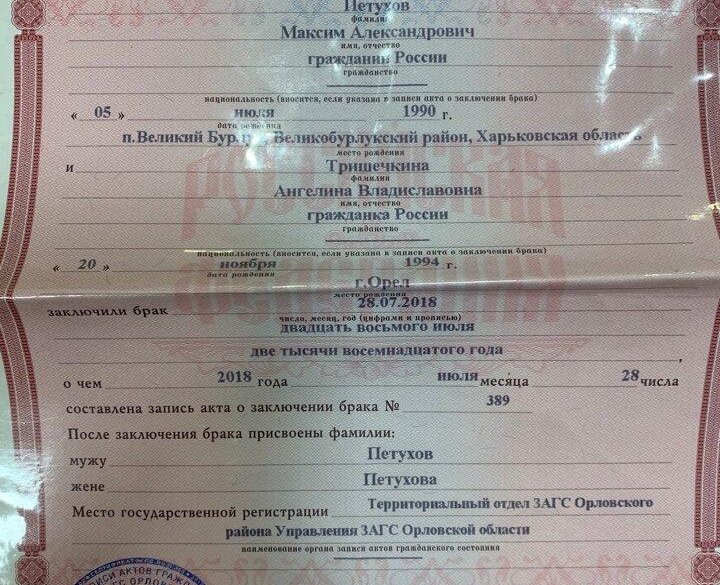 Петухов
фамилия
Максим Александрович
имя, отчество
гражданин России
гражданство
национальность (вносится, если указана в записи акта о заключении брака)
« 05 » июля 1990 г.
дата рождения
п.Великий Бурлук, Великобурлукский район, Харьковская область
место рождения
и Тришечкина
фамилия
Ангелина Владиславовна
имя, отчество
гражданка России
гражданство
национальность (вносится, если указана в записи акта о заключении брака)
« 20 » ноября 1994 г.
дата рождения
г.Орел
место рождения
заключили брак 28.07.2018
число, месяц, год (цифрами и прописью)
двадцать восьмого июля
две тысячи восемнадцатого года
о чем 2018 года июля месяца 28 числа
составлена запись акта о заключении брака № 389
После заключения брака присвоены фамилии:
мужу Петухов
жене Петухова
Место государственной регистрации Территориальный отдел ЗАГС Орловского
района Управления ЗАГС Орловской области
наименование органа записи актов гражданского состояния